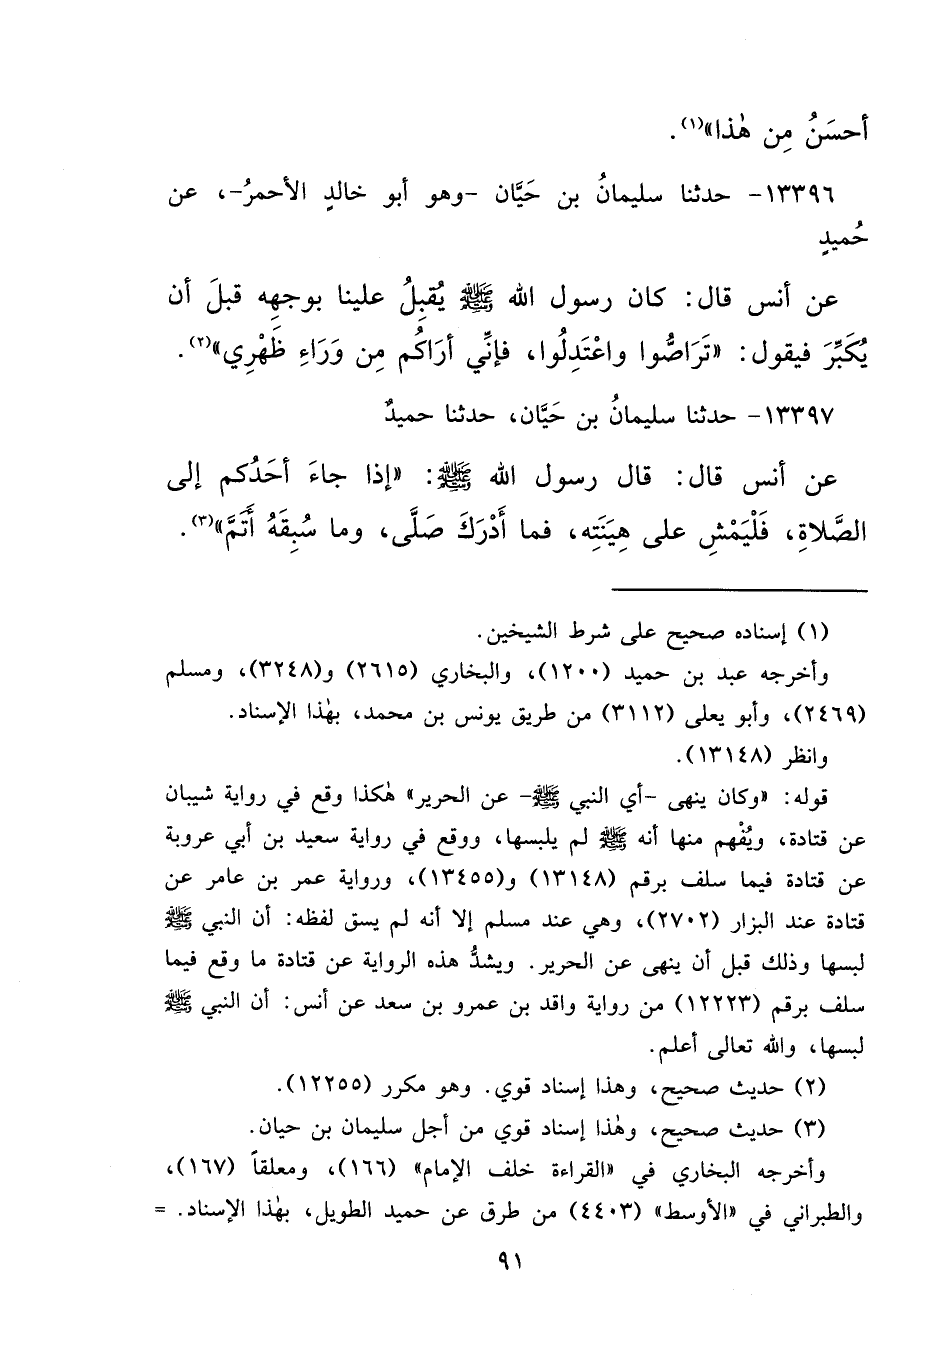 أحسَنُ مِن هٰذا»(١).
١٣٣٩٦- حدثنا سليمانُ بن حَيَّان -وهو أبو خالدٍ الأحمرُ-، عن
حُميدٍ
عن أنس قال: كان رسول الله ﷺ يُقبِلُ علينا بوجهِه قبلَ أن
يُكَبِّرَ فيقول: «تَرَاصُّوا واعْتَدِلُوا، فإنِّي أرَاكُم مِن وَرَاءِ ظَهْرِي»(٢).
١٣٣٩٧- حدثنا سليمانُ بن حَيَّان، حدثنا حميدٌ
عن أنس قال: قال رسول الله ﷺ: «إذا جاءَ أحَدُكم إلى
الصَّلاةِ، فَلْيَمْشِ على هِينَتِه، فما أَدْرَكَ صَلَّى، وما سُبِقَهُ أَتَمَّ»(٣).
(١) إسناده صحيح على شرط الشيخين.
وأخرجه عبد بن حميد (١٢٠٠)، والبخاري (٢٦١٥) و(٣٢٤٨)، ومسلم
(٢٤٦٩)، وأبو يعلى (٣١١٢) من طريق يونس بن محمد، بهٰذا الإسناد.
وانظر (١٣١٤٨).
قوله: «وكان ينهى -أي النبي ﷺ- عن الحرير» هٰكذا وقع في رواية شيبان
عن قتادة، ويُفْهم منها أنه ﷺ لم يلبسها، ووقع في رواية سعيد بن أبي عروبة
عن قتادة فيما سلف برقم (١٣١٤٨) و(١٣٤٥٥)، ورواية عمر بن عامر عن
قتادة عند البزار (٢٧٠٢)، وهي عند مسلم إلا أنه لم يسق لفظه: أن النبي ﷺ
لبسها وذلك قبل أن ينهى عن الحرير. ويشدُّ هذه الرواية عن قتادة ما وقع فيما
سلف برقم (١٢٢٢٣) من رواية واقد بن عمرو بن سعد عن أنس: أن النبي ﷺ
لبسها، والله تعالى أعلم.
(٢) حديث صحيح، وهذا إسناد قوي. وهو مكرر (١٢٢٥٥).
(٣) حديث صحيح، وهٰذا إسناد قوي من أجل سليمان بن حيان.
وأخرجه البخاري في «القراءة خلف الإمام» (١٦٦)، ومعلقاً (١٦٧)،
والطبراني في «الأوسط» (٤٤٠٣) من طرق عن حميد الطويل، بهٰذا الإسناد. =
٩١